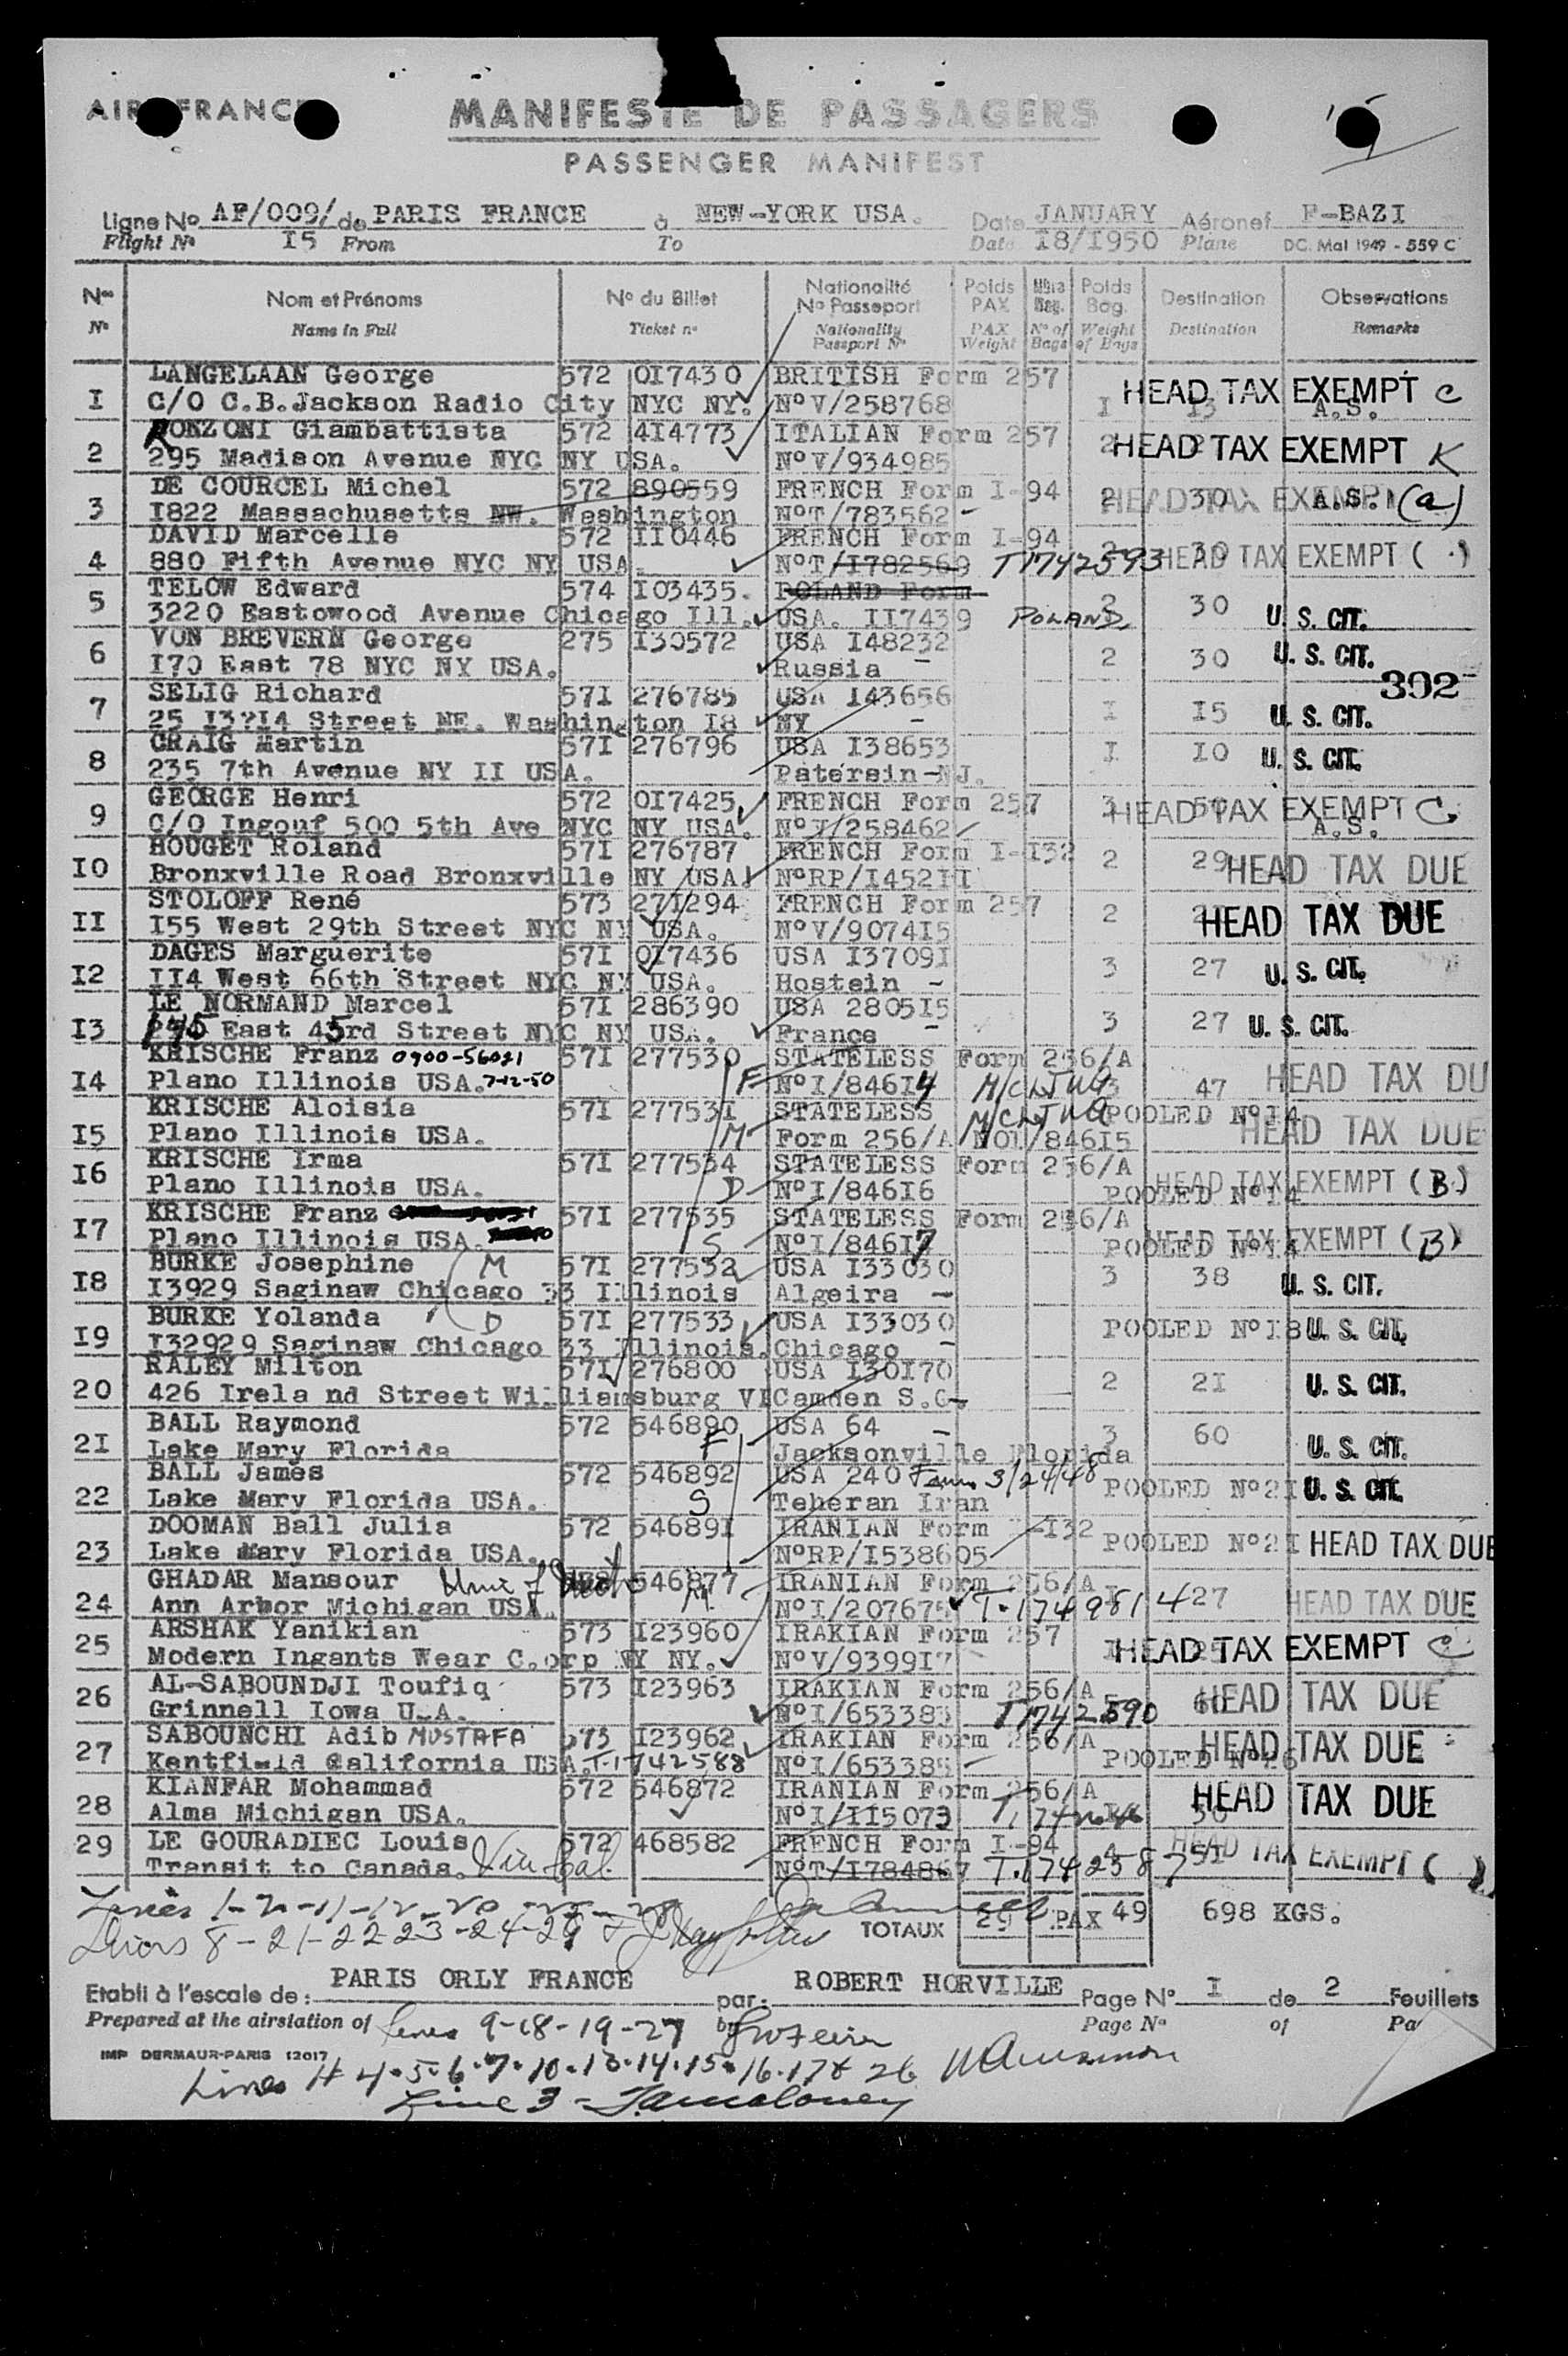 AIR FRANCE
MANIFESTE DE PASSAGERS
PASSENGER MANIFEST
Ligne No AF/009/ de PARIS FRANCE à NEW-YORK USA. Date JANUARY Aéronef F-BAZI
Flight No I5 From To Date I8/I950 Plane DC. Mai 1949 - 559 C
Nos Nom et Prénoms No du Billet Nationalité No Passeport Poids PAX Nbre Bag. Poids Bag. Destination Observations
No Name in Full Ticket no Nationality Passport No PAX Weight No of Bags Weight of Bags Destination Remarks
LANGELAAN George 572 0I7430 BRITISH Form 257
I C/O C.B.Jackson Radio City NYC NY. NoV/258768 I I3 HEAD TAX EXEMPT C A.S.
RONZONI Giambattista 572 4I4773 ITALIAN Form 257
2 295 Madison Avenue NYC NY USA. NoV/934985 2 HEAD TAX EXEMPT K
DE COURCEL Michel 572 890559 FRENCH Form I-94 2 30 HEAD TAX EXEMPT A.S. (a)
3 I822 Massachusetts NW. Washington NoT/783562 -
DAVID Marcelle 572 II0446 FRENCH Form I-94
4 880 Fifth Avenue NYC NY USA. NoT/I782569 T1742593 2 30 HEAD TAX EXEMPT ( )
TELOW Edward 574 I03435. POLAND Form
5 3220 Eastowood Avenue Chicago Ill. USA. II7439 POLAND. 2 30 U. S. CIT.
VON BREVERN George 275 I30572 USA I48232
6 I70 East 78 NYC NY USA. Russia - 2 30 U. S. CIT.
302
SELIG Richard 57I 276785 USA I43656
7 25 I3?I4 Street NE. Washington I8 NY - I I5 U. S. CIT.
CRAIG Martin 57I 276796 USA I38653
8 235 7th Avenue NY II USA. Patersin-NJ. I I0 U. S. CIT.
GEORGE Henri 572 0I7425 FRENCH Form 257
9 C/O Ingouf 500 5th Ave NYC NY USA. NoI/258462 3 HEAD TAX EXEMPT C A.S.
HOUGET Roland 57I 276787 FRENCH Form I-I32
I0 Bronxville Road Bronxville NY USA. NoRP/I452II 2 29 HEAD TAX DUE
STOLOFF René 573 27I294 FRENCH Form 257
II I55 West 29th Street NYC NY USA. NoV/9074I5 2 HEAD TAX DUE
DAGES Marguerite 57I 0I7436 USA I3709I
I2 II4 West 66th Street NYC NY USA. Hostein - 3 27 U. S. CIT.
LE NORMAND Marcel 57I 286390 USA 2805I5
I3 145 East 45rd Street NYC NY USA. France - 3 27 U. S. CIT.
KRISCHE Franz 0900-56021 57I 277530 STATELESS Form 256/A
I4 Plano Illinois USA. 7-12-50 F NoI/846I4 3 47 HEAD TAX DU
KRISCHE Aloisia 57I 27753I STATELESS POOLED NoI4
I5 Plano Illinois USA. M Form 256/A NOI/846I5 HEAD TAX DUE
KRISCHE Irma 57I 277534 STATELESS Form 256/A
I6 Plano Illinois USA. D NoI/846I6 POOLED NoI4 HEAD TAX EXEMPT (B)
KRISCHE Franz 57I 277535 STATELESS Form 256/A
I7 Plano Illinois USA. S NoI/846I7 POOLED NoI4 HEAD TAX EXEMPT (B)
BURKE Josephine M 57I 277532 USA I33030
I8 I3929 Saginaw Chicago 33 Illinois Algeira - 3 38 U. S. CIT.
BURKE Yolanda D 57I 277533 USA I33030
I9 I32929 Saginaw Chicago 33 Illinois. Chicago - POOLED NoI8 U. S. CIT.
RALEY Milton 57I 276800 USA I30I70
20 426 Irela nd Street Williamsburg VI Camden S.C- 2 2I U. S. CIT.
BALL Raymond 572 546890 USA 64 -
2I Lake Mary Florida F Jacksonville Florida 3 60 U. S. CIT.
BALL James 572 546892 USA 240 3/24/48
22 Lake Mary Florida USA. S Teheran Iran POOLED No2I U. S. CIT.
DOOMAN Ball Julia 572 54689I IRANIAN Form I-I32
23 Lake Mary Florida USA. NoRP/I538605 POOLED No2I HEAD TAX DUE
GHADAR Mansour 546877 IRANIAN Form 256/A
24 Ann Arbor Michigan USA. NoI/207675 T.1749814 27 HEAD TAX DUE
ARSHAK Yanikian 573 I23960 IRAKIAN Form 257
25 Modern Ingants Wear C.orp NY NY. NoV/9399I7 HEAD TAX EXEMPT C
AL-SABOUNDJI Toufiq 573 I23963 IRAKIAN Form 256/A
26 Grinnell Iowa U.A. NoI/653383 T1742590 HEAD TAX DUE
SABOUNCHI Adib MUSTAFA 573 I23962 IRAKIAN Form 256/A
27 Kentfield California USA. T.1742588 NoI/653385 POOLED No26 HEAD TAX DUE
KIANFAR Mohammad 572 546872 IRANIAN Form 256/A
28 Alma Michigan USA. NoI/II5073 HEAD TAX DUE
29 LE GOURADIEC Louis 572 468582 FRENCH Form I-94
Transit to Canada. NoT/I784867 T.1742587 4 5I HEAD TAX EXEMPT ( )
TOTAUX 29 PAX 49 698 KGS.
Lines 8-21-22-23-24-29
Etabli à l'escale de: PARIS ORLY FRANCE par: ROBERT HORVILLE Page No I de 2 Feuillets
Prepared at the airstation of Lines 9-18-19-27 by Page No of Pa
IMP DERMAUR-PARIS 12017
Lines # 4.5.6.7.10.13.14.15.16.17& 26
Line 3 -